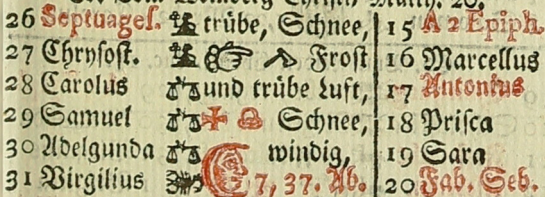 26 Septuages. trübe, Schnee, 15 A 2 Epiph.
27 Chrysost. Frost 16 Marcellus
28 Carolus und trübe Luft, 17 Antonius
29 Samuel Schnee, 18 Prisca
30 Adelgunda windig, 19 Sara
31 Virgilius 7, 37. Ab. 20 Fab. Seb.